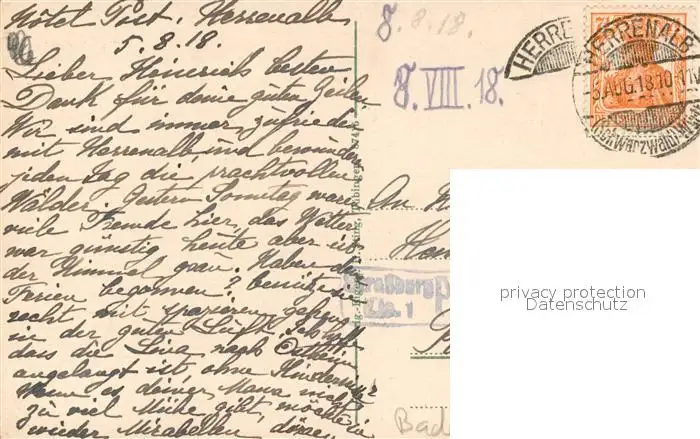 Hôtel Post, Herrenalb
5.8.18.
Lieber Heinrich besten
Dank für deine guten Zeilen.
Wir sind immer zufrieden
mit Herrenalb, und bewundern
jeden Tag die prachtvollen
Wälder. Gestern Sonntag waren
viele Fremde hier, das Wetter
war günstig heute aber ist
der Himmel grau. Haben die
Ferien begonnen? benütze sie
recht mit spazieren gehen
in der guten Luft. Ich hoffe
dass die Lina nach Ostheim
angelangt ist, ohne
Wenn es deiner Mama nicht
zu viel Mühe gibt, möchte ich
wieder Mirabellen
8.8.18.
8.VIII.18.
HERRENALB
HERRENALB
AUG.18.10-11
(Schwarzwald)
An
Straßburg
1
Bad
privacy protection
Datenschutz